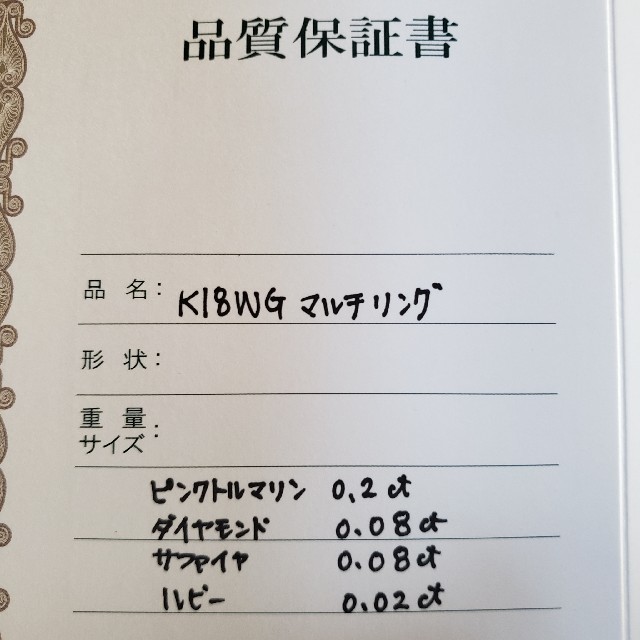 品質保証書
品 名： K18WG マルチリング
形 状：
重 量
サイズ：
ピンクトルマリン 0.2 ct
ダイヤモンド 0.08 ct
サファイヤ 0.08 ct
ルビー 0.02 ct